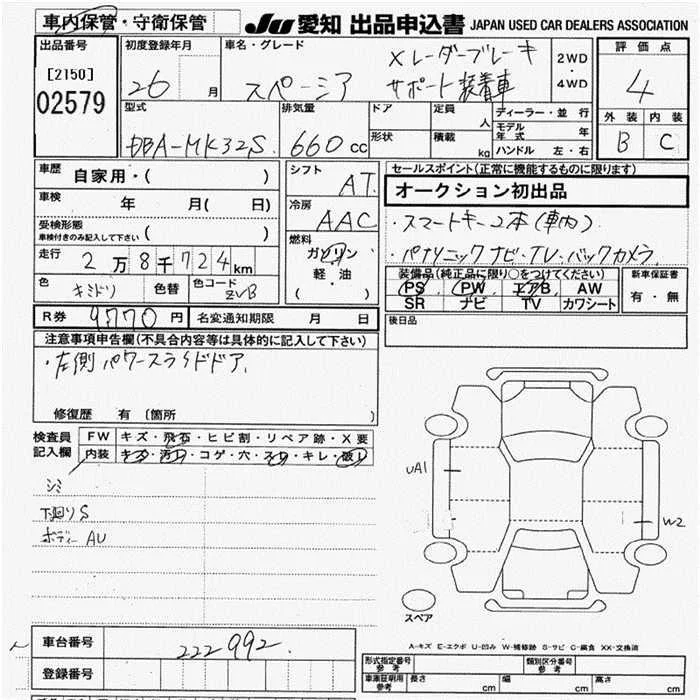 車内保管・守衛保管
JU 愛知 出品申込書 JAPAN USED CAR DEALERS ASSOCIATION
出品番号
[2150]
02579
初度登録年月
26 月
車名・グレード
スペーシア
Xレーダーブレーキ
サポート装着車
2WD
・
4WD
評価点
4
外装 内装
B C
型式
DBA-MK32S
排気量
660 cc
ドア
形状
定員
人
積載
kg
ディーラー・並行
モデル年式 年
ハンドル 左・右
車歴
自家用・( )
車検
年 月( 日)
受検形態
車検付きのみ記入して下さい ( )
走行
2万8千724km
色
キミドリ
色替
色コード
ZVB
シフト
AT
冷房
AAC
燃料
ガソリン
軽・油
( )
セールスポイント(正常に機能するものに限ります)
オークション初出品
・スマートキー2本(車内)
・パナソニックナビ・TV・バックカメラ
装備品(純正品に限り○をつけてください)
PS PW エアB AW
SR ナビ TV カワシート
新車保証書
有・無
R券 9770円 名変通知期限 月 日
後日品
注意事項申告欄(不具合内容等は具体的に記入して下さい)
・左側パワースライドドア
修復歴 有 〔箇所 〕
検査員
記入欄
FW キズ・飛石・ヒビ割・リペア跡・X要
内装 キズ・汚れ・コゲ・穴・スレ・キレ・破し
シミ
下廻りS
ボディーAU
UA1
W2
スペア
A-キズ E-エクボ U-凹み W-補修跡 S-サビ C-腐食 XX-交換済
車台番号 222992
登録番号
形式指定番号
参考
類別区分番号
参考
車庫証明用
参考
長さ cm 幅 cm 高さ cm